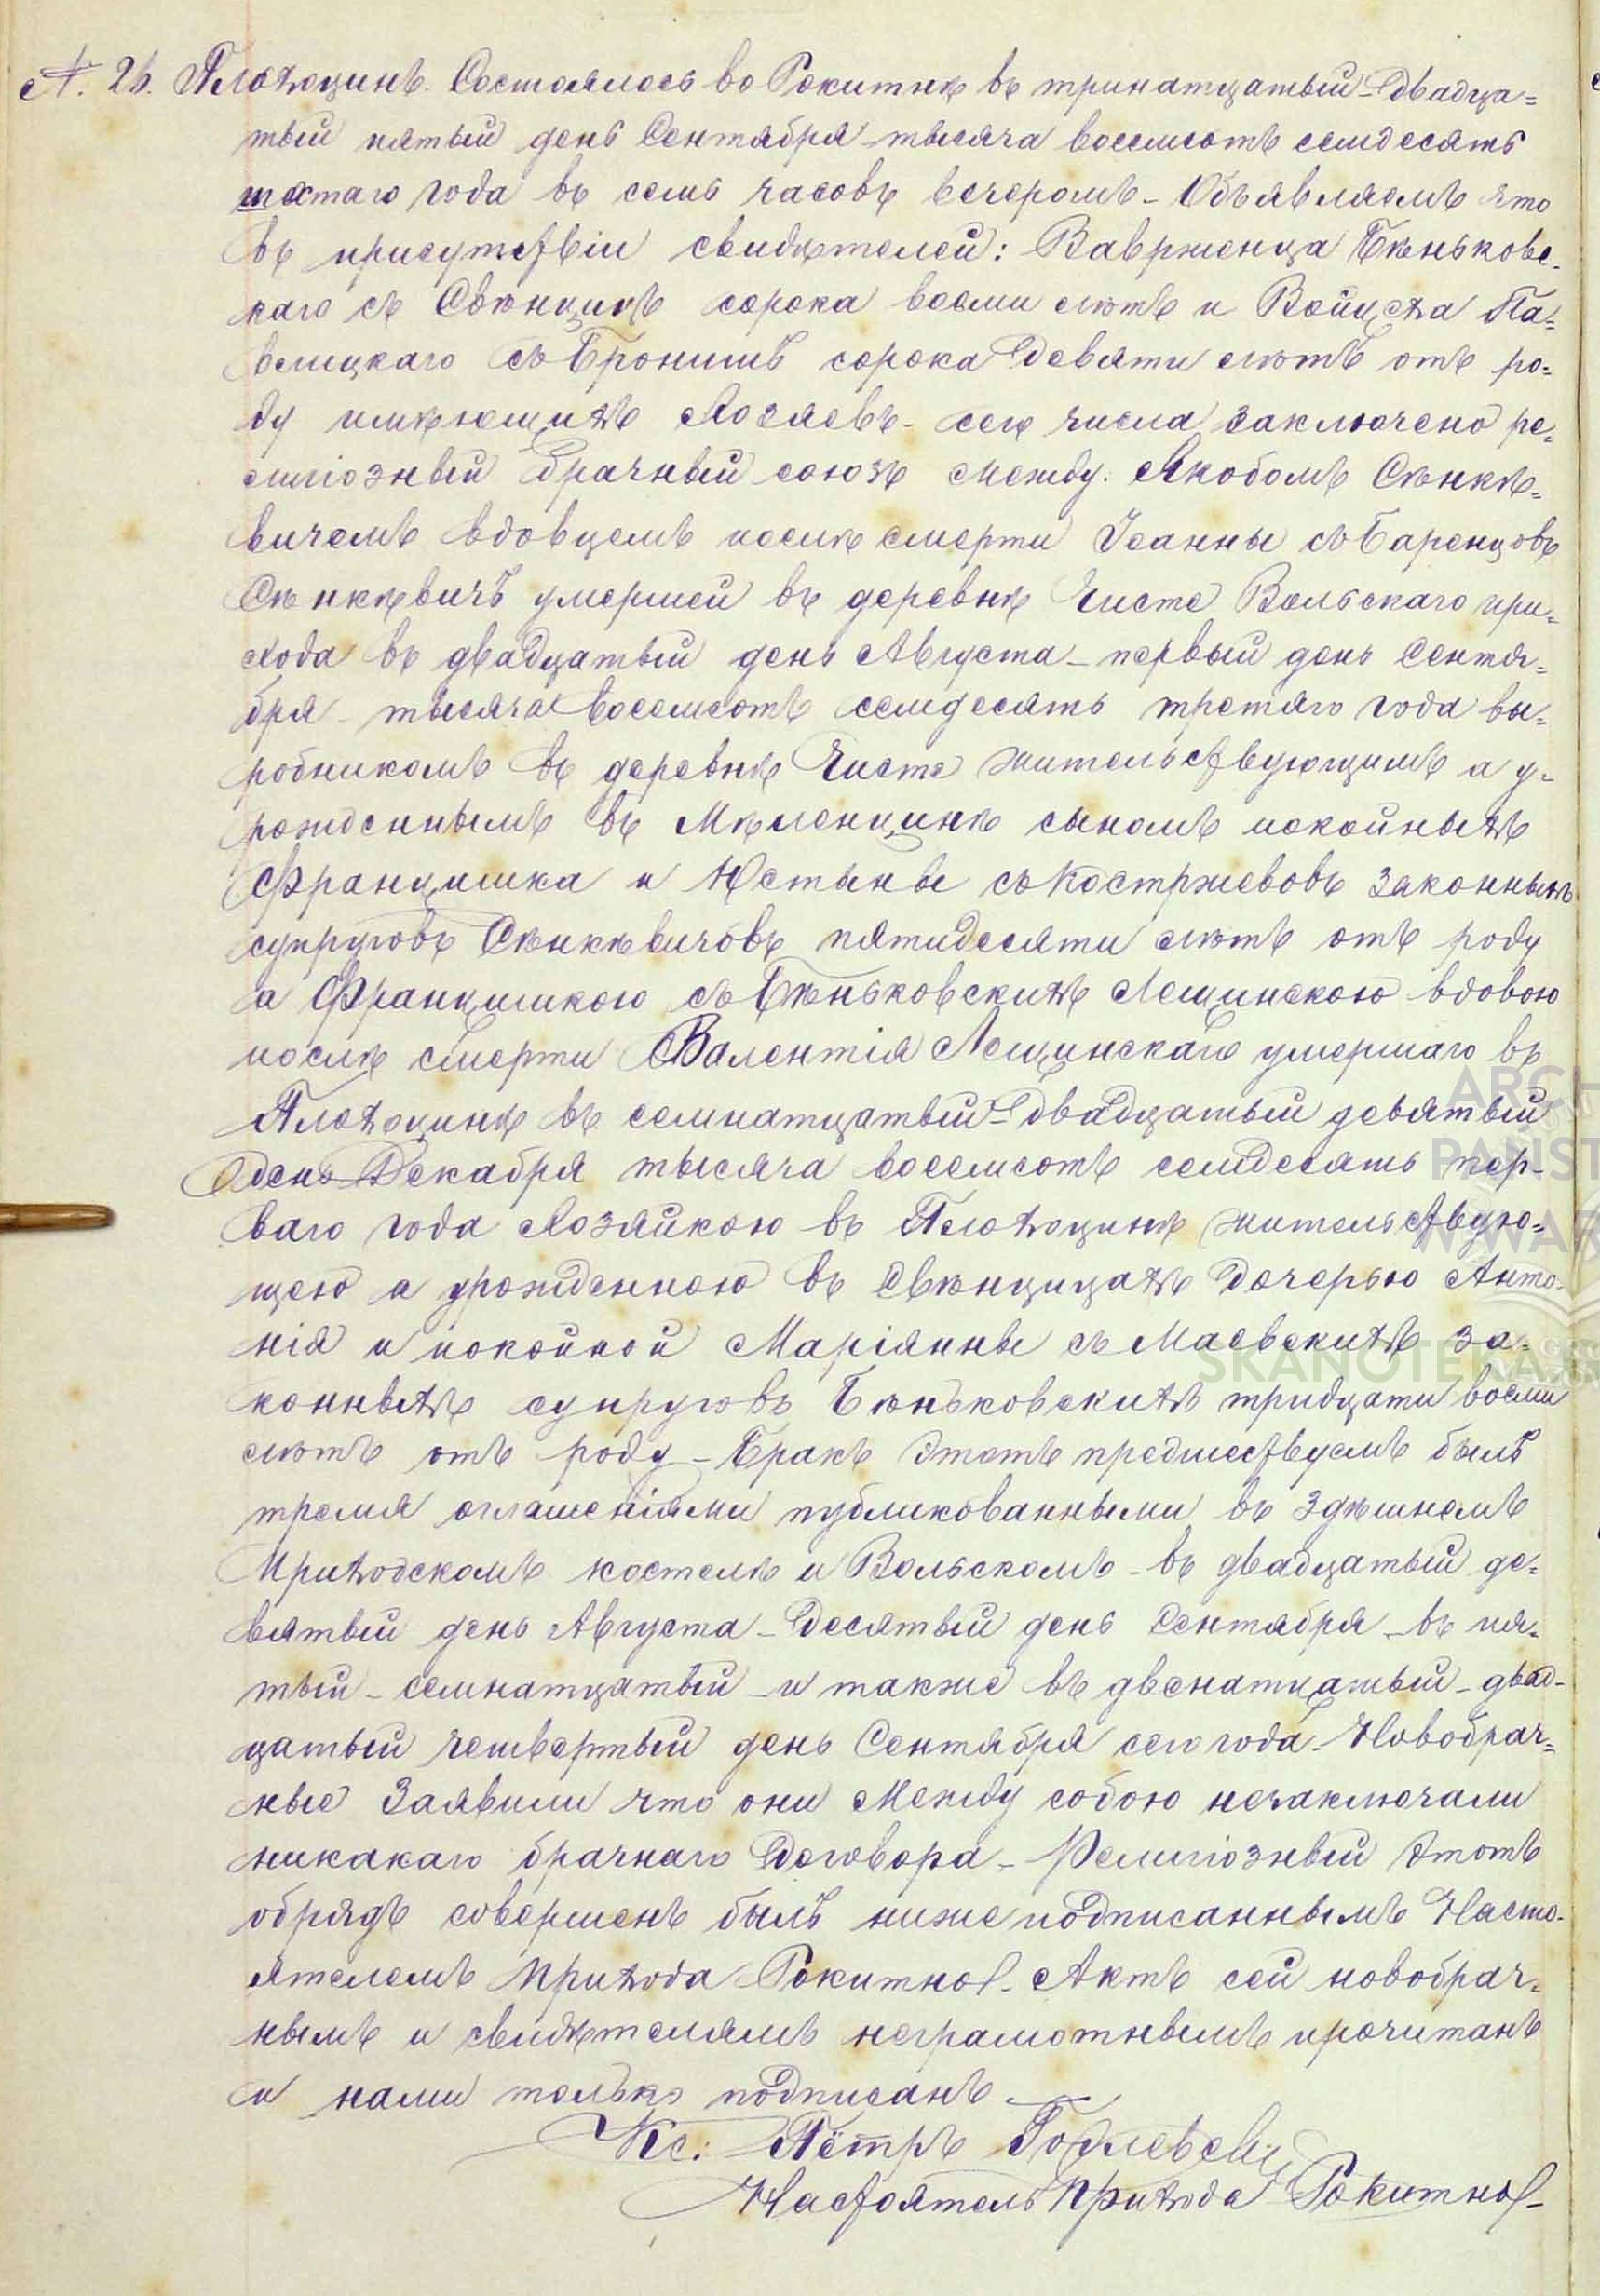 №. 26. Плохоцинъ. Состоялось во Рокитнѣ въ тринатцатый - двадца=
тый пятый день Сентября тысяча восемсотъ семдесять
шестаго года въ семь часовъ вечеромъ - Объявляемъ что
въ присутствіи свидѣтелей: Вавржеńца Бѣньковс-
каго съ Свѣнцицъ сорока восми лѣтъ и Войцѣха Па=
велицкаго съ Бронишъ сорока девяти лѣтъ отъ ро=
ду имѣющихъ Хозяевъ - сего числа заключено ре=
лигіозный брачный союзъ между. Якобомъ Сѣнкѣ=
вичемъ вдовцемъ послѣ смерти Іоанны съ Баренцовъ
Сѣнкѣвичъ умершей въ деревнѣ Чисте Вольскаго при=
хода въ двадцатый день Августа - первый день Сентя=
бря тысяча восемсотъ семдесять третяго года вы=
робникомъ въ деревнѣ Чисте жительствующимъ а у=
рожденнымъ въ Мѣленцинѣ сыномъ покойныхъ
Францишка и Юстыны съ Костржевовъ законныхъ
супруговъ Сѣнкѣвичовъ пятидесяти лѣтъ отъ роду
а Францишкою съ Бѣньковскихъ Лещинскою вдовою
послѣ смерти Валентія Лещинскаго умершаго въ
Плохоцинѣ въ семнатцатый - двадцатый девятый
день Декабря тысяча восемсотъ семдесять пер-
ваго года Хозяйкою въ Плохоцинѣ жительствую=
щею а урожденною въ Свѣнцицахъ дочерью Анто-
нія и покойной Маріянны съ Маевскихъ за=
конныхъ супруговъ Бѣньковскихъ тридцати восми
лѣтъ отъ роду - Бракъ этотъ предшествуемъ былъ
тремя оглашеніями публикованными въ здѣшнемъ
Приходскомъ костелѣ и Вольскомъ - въ двадцатый де=
вятый день Августа - десятый день Сентября - въ пя=
тый - семнатцатый - и также въ двенатцатый - двад-
цатый четвертый день Сентября сего года - Новобрач=
ные Заявили что они между собою незаключали
никакаго брачнаго договора - Религіозный этотъ
обрядъ совершенъ былъ ниже подписаннымъ Насто-
ятелемъ Прихода Рокитно - Актъ сей новобрач=
нымъ и свидѣтелямъ неграмотнымъ прочитанъ
и нами только подписанъ
Кс: Пётръ Годлевски
Настоятель Прихода Рокитно -